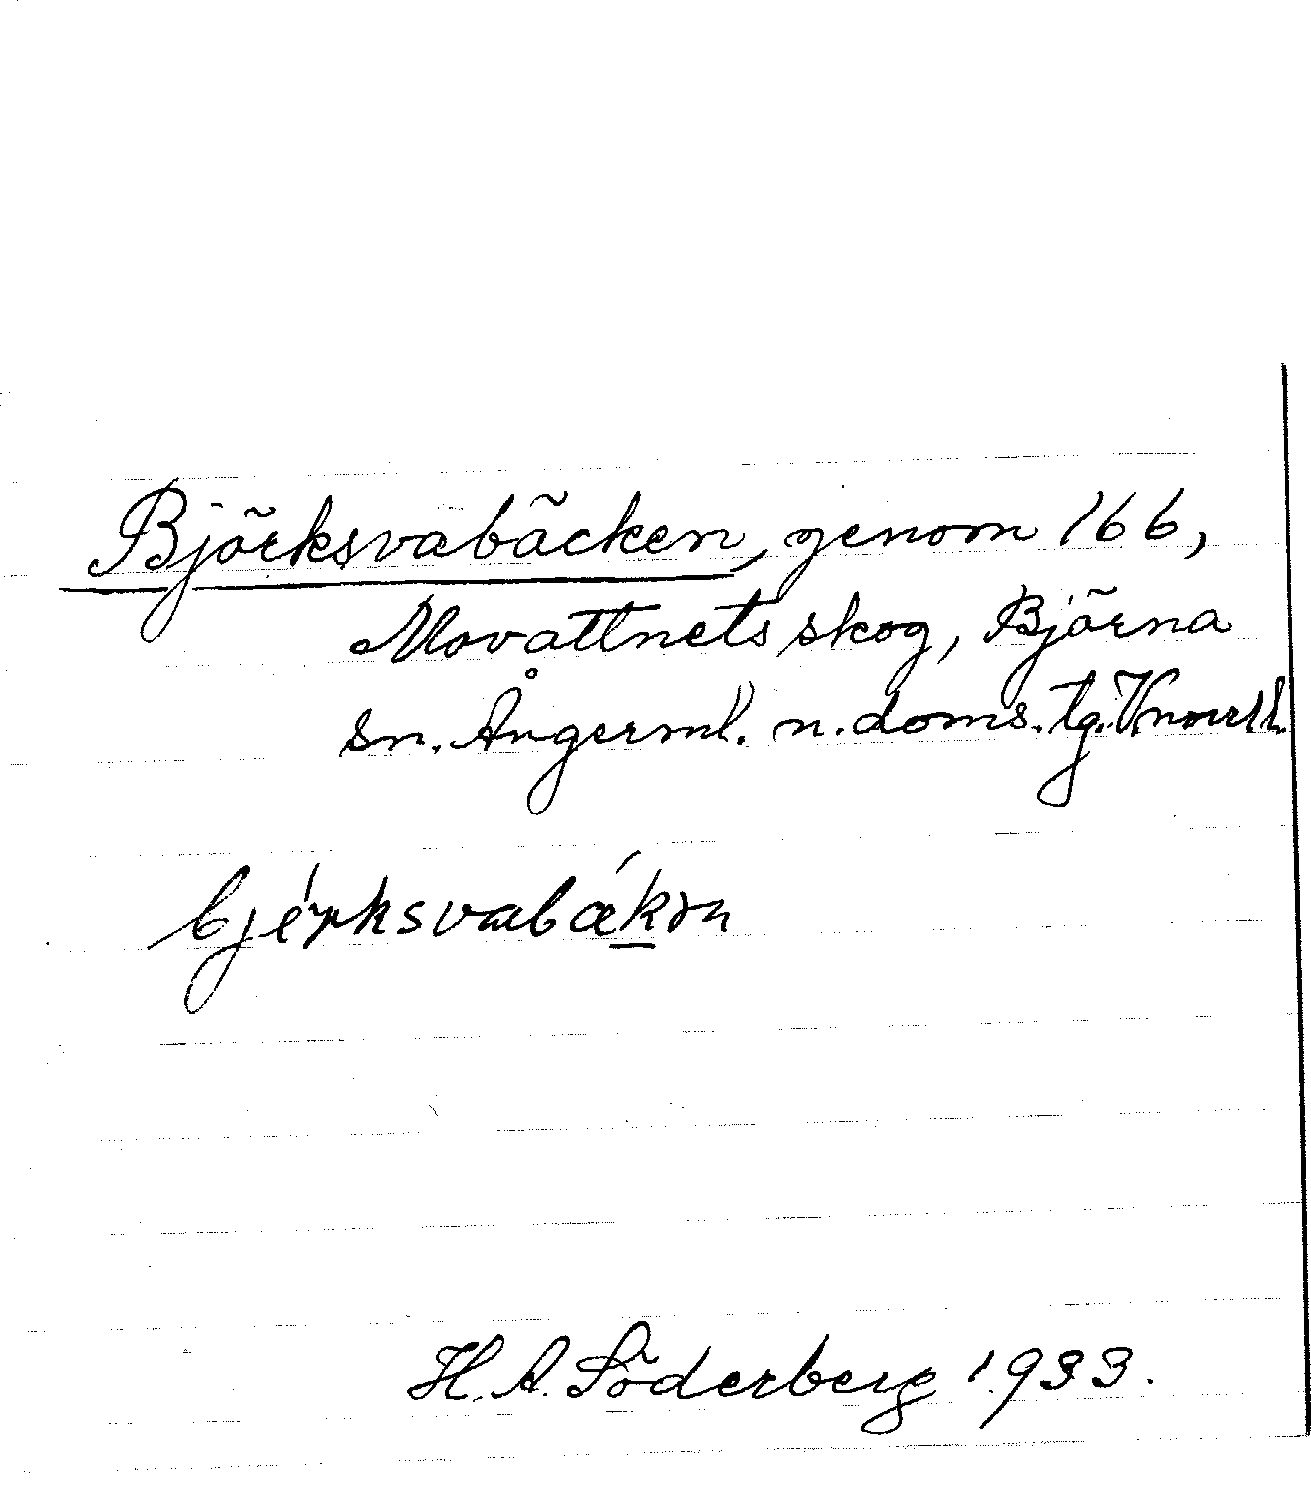 Björksvabäcken, genom 166,
Movattnets skog, Björna
sn. Ångerml. n. doms. tg. Vnorrl.
bjérksvabák
H. A. Söderberg 1933.